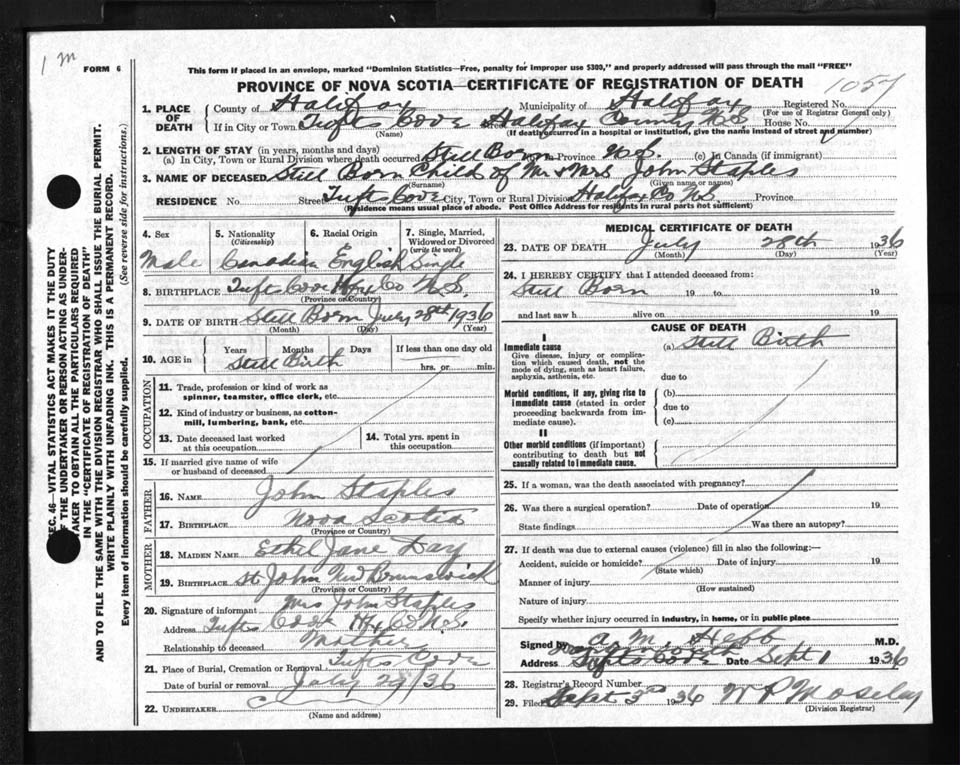 1 m
FORM 6
This form if placed in an envelope, marked "Dominion Statistics—Free, penalty for improper use $300," and properly addressed will pass through the mail "FREE"
PROVINCE OF NOVA SCOTIA—CERTIFICATE OF REGISTRATION OF DEATH
1057
1. PLACE OF DEATH
County of Halifax Municipality of Halifax Registered No.
(For use of Registrar General only)
If in City or Town Tufts Cove Halifax County N.S. House No.
(Name) (If death occurred in a hospital or institution, give the name instead of street and number)
2. LENGTH OF STAY (in years, months and days)
(a) In City, Town or Rural Division where death occurred Still Born In Province N.S. (c) In Canada (if immigrant)
3. NAME OF DECEASED Still Born Child of Mr & Mrs John Staples
(Surname) (Given name or names)
RESIDENCE No. Street Tufts Cove City, Town or Rural Division Halifax Co N.S. Province
(Residence means usual place of abode. Post Office Address for residents in rural parts not sufficient)
4. Sex 5. Nationality (Citizenship) 6. Racial Origin 7. Single, Married, Widowed or Divorced (write the word)
Male Canadian English Single
8. BIRTHPLACE Tufts Cove Hfx Co N.S.
(Province or Country)
9. DATE OF BIRTH Still Born July 28th 1936
(Month) (Day) (Year)
10. AGE in Years Months Days If less than one day old
Still Birth hrs. or min.
OCCUPATION
11. Trade, profession or kind of work as spinner, teamster, office clerk, etc.
12. Kind of industry or business, as cotton-mill, lumbering, bank, etc.
13. Date deceased last worked at this occupation
14. Total yrs. spent in this occupation
15. If married give name of wife or husband of deceased
FATHER
16. NAME John Staples
17. BIRTHPLACE Nova Scotia
(Province or Country)
MOTHER
18. MAIDEN NAME Ethel Jane Day
19. BIRTHPLACE St John New Brunswick
(Province or Country)
20. Signature of informant Mrs John Staples
Address Tufts Cove Hfx Co N.S.
Relationship to deceased Mother
21. Place of Burial, Cremation or Removal Tufts Cove
Date of burial or removal July 29/36
22. UNDERTAKER
(Name and address)
MEDICAL CERTIFICATE OF DEATH
23. DATE OF DEATH July 28th 1936
(Month) (Day) (Year)
24. I HEREBY CERTIFY that I attended deceased from:
Still Born 19 to 19
and last saw h alive on 19
CAUSE OF DEATH
I
Immediate cause (a) Still Birth
Give disease, injury or complication which caused death, not the mode of dying, such as heart failure, asphyxia, asthenia, etc.
due to
Morbid conditions, if any, giving rise to immediate cause (stated in order proceeding backwards from immediate cause).
(b)
due to
(c)
II
Other morbid conditions (if important) contributing to death but not causally related to immediate cause.
25. If a woman, was the death associated with pregnancy?
26. Was there a surgical operation? Date of operation 19
State findings Was there an autopsy?
27. If death was due to external causes (violence) fill in also the following:—
Accident, suicide or homicide? Date of injury 19
(State which)
Manner of injury
(How sustained)
Nature of injury
Specify whether injury occurred in industry, in home, or in public place
Signed by A. M. Hebb M.D.
Address Tufts Cove Date Sept 1 1936
28. Registrar's Record Number
29. Filed Sept 3rd 1936 W P Moseley
(Division Registrar)
SEC. 46—VITAL STATISTICS ACT MAKES IT THE DUTY
OF THE UNDERTAKER OR PERSON ACTING AS UNDER-
TAKER TO OBTAIN ALL THE PARTICULARS REQUIRED
IN THE "CERTIFICATE OF REGISTRATION OF DEATH"
AND TO FILE THE SAME WITH THE DIVISION REGISTRAR WHO SHALL ISSUE THE BURIAL PERMIT.
WRITE PLAINLY WITH UNFADING INK. THIS IS A PERMANENT RECORD.
Every item of information should be carefully supplied. (See reverse side for instructions.)